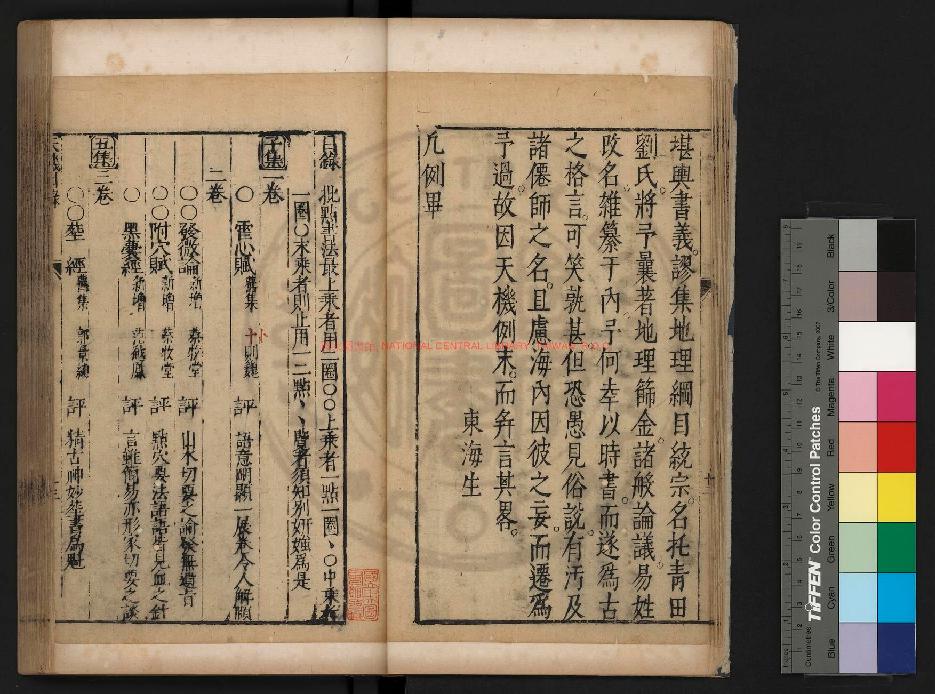 堪輿書義謬集地理綱目統宗名托青田
劉氏將予曩著地理篩金諸般論議易姓
改名雜纂于內予何幸以時書而遂為古
之格言可笑孰甚但恐愚見俗說有汚及
諸僊師之名且慮海內因彼之妄而遷為
予過故因天機例末而弁言其畧
東海生
凡例畢
目錄 批點書法最上乘者用二圈○○上乘者一點一圈、○中乘者
一圈○末乘者則止用一二點、、覽者須知別妍媸為是
子集一卷
○ 雪心賦 舊集 卜則巍 評 語意明顯一展卷令人解頤
二卷
○○發微論 新增 蔡牧堂 評 山水切要之論發無遺旨
○○附穴賦 新增 蔡牧堂 評 點穴要法語語
○ 黑囊經 新增 范越鳳 評 言雖簡易亦形家切要之談
丑集三卷
○○葬經 舊集 郭景純 評 精古神妙葬書鼻祖
NATIONAL CENTRAL LIBRARY
TIFFEN Color Control Patches
© The Tiffen Company, 2007
Centimetres
Blue
Cyan
Green
Yellow
Red
Magenta
White
3/Color
Black